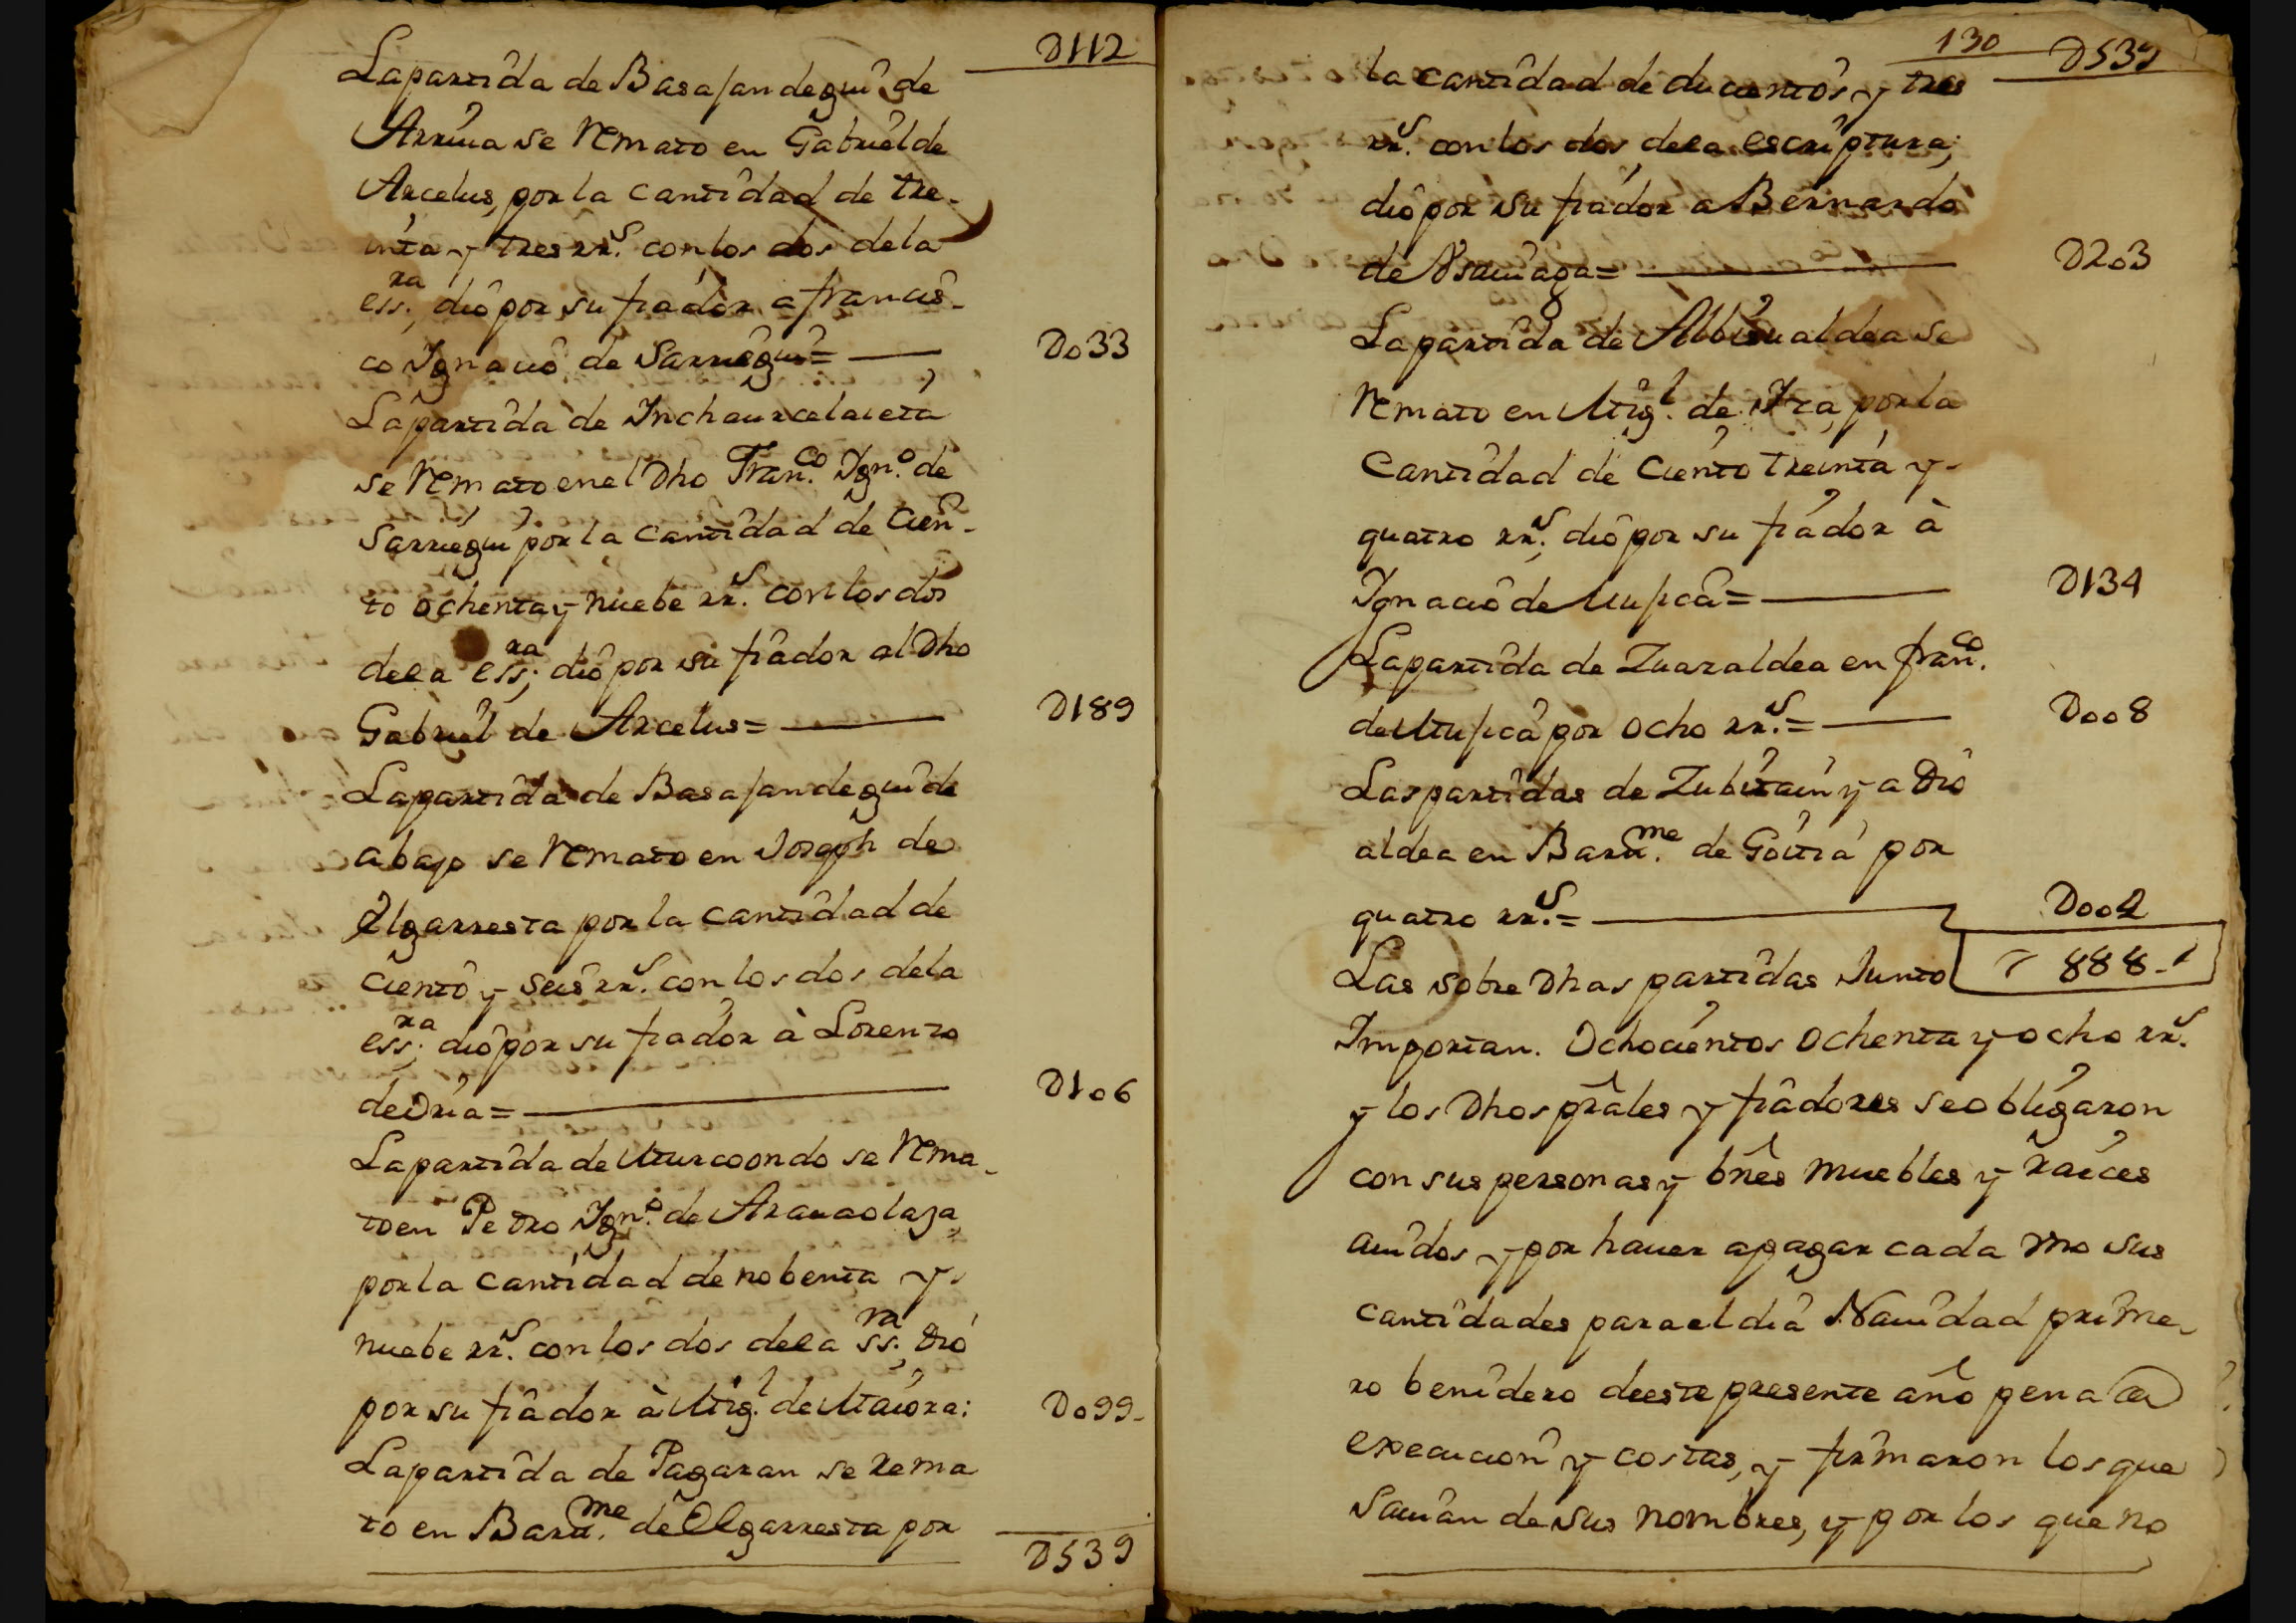 D112
La partida de Basajandegui de
Arriva se Remato en Gabriel de
Arcelus, por la cantidad de tre-
inta y tres rrs. con los dos de la
essra; dio por su fiador a francis-
co Ygnacio de Sarriegui= D033
La partida de Inchaurcelaieta
se Remato en el Dho Franco. Ygno. de
Sarriegui por la cantidad de Cien-
to ochenta y nuebe rrs. con los dos
de la essra; dio por su fiador al Dho
Gabriel de Arcelus= D189
La partida de Basajandegui de
abajo se Remato en Joseph de
Elgarresta por la cantidad de
ciento y seis rrs. con los dos de la
essra; dio por su fiador à Lorenzo
de Oria= D106
La partida de Uturcoondo se Rema-
to en Pedro Ygno. de
por la cantidad de nobenta y
nuebe rrs. con los dos de la ssra; dio
por su fiador à Migl. de D099-
La partida de Pagaran se rema
to en Barme. de Elgarresta por
D539
130 D539
la cantidad de ducientos y tres
rrs. con los dos de la escriptura;
dio por su fiador a Bernardo
de = D203
La partida de Albisualdea se
Remato en Migl. de por la
Cantidad de Ciento treinta y
quatro rrs; dio por su fiador à
Ygnacio de Mujica= D134
La partida de Zuaraldea en franco.
de Mujica por ocho rrs.= D008
Las partidas de Zubitain y a Dio
aldea en Barme. de Goitia por
quatro rrs.= D004
Las sobre Dhas partidas Junto 888
Importan. Ochocientos ochenta y ocho rrs.
y los Dhos prâles y fiadores se obligaron
con sus personas y bnês muebles y raices
auidos y por hauer a pagar cada vno sus
cantidades para el dia Nauidad prime-
ro benidero de este presente año pena de
execucion y costas, y firmaron los que
sauian de sus nombres, y por los que no